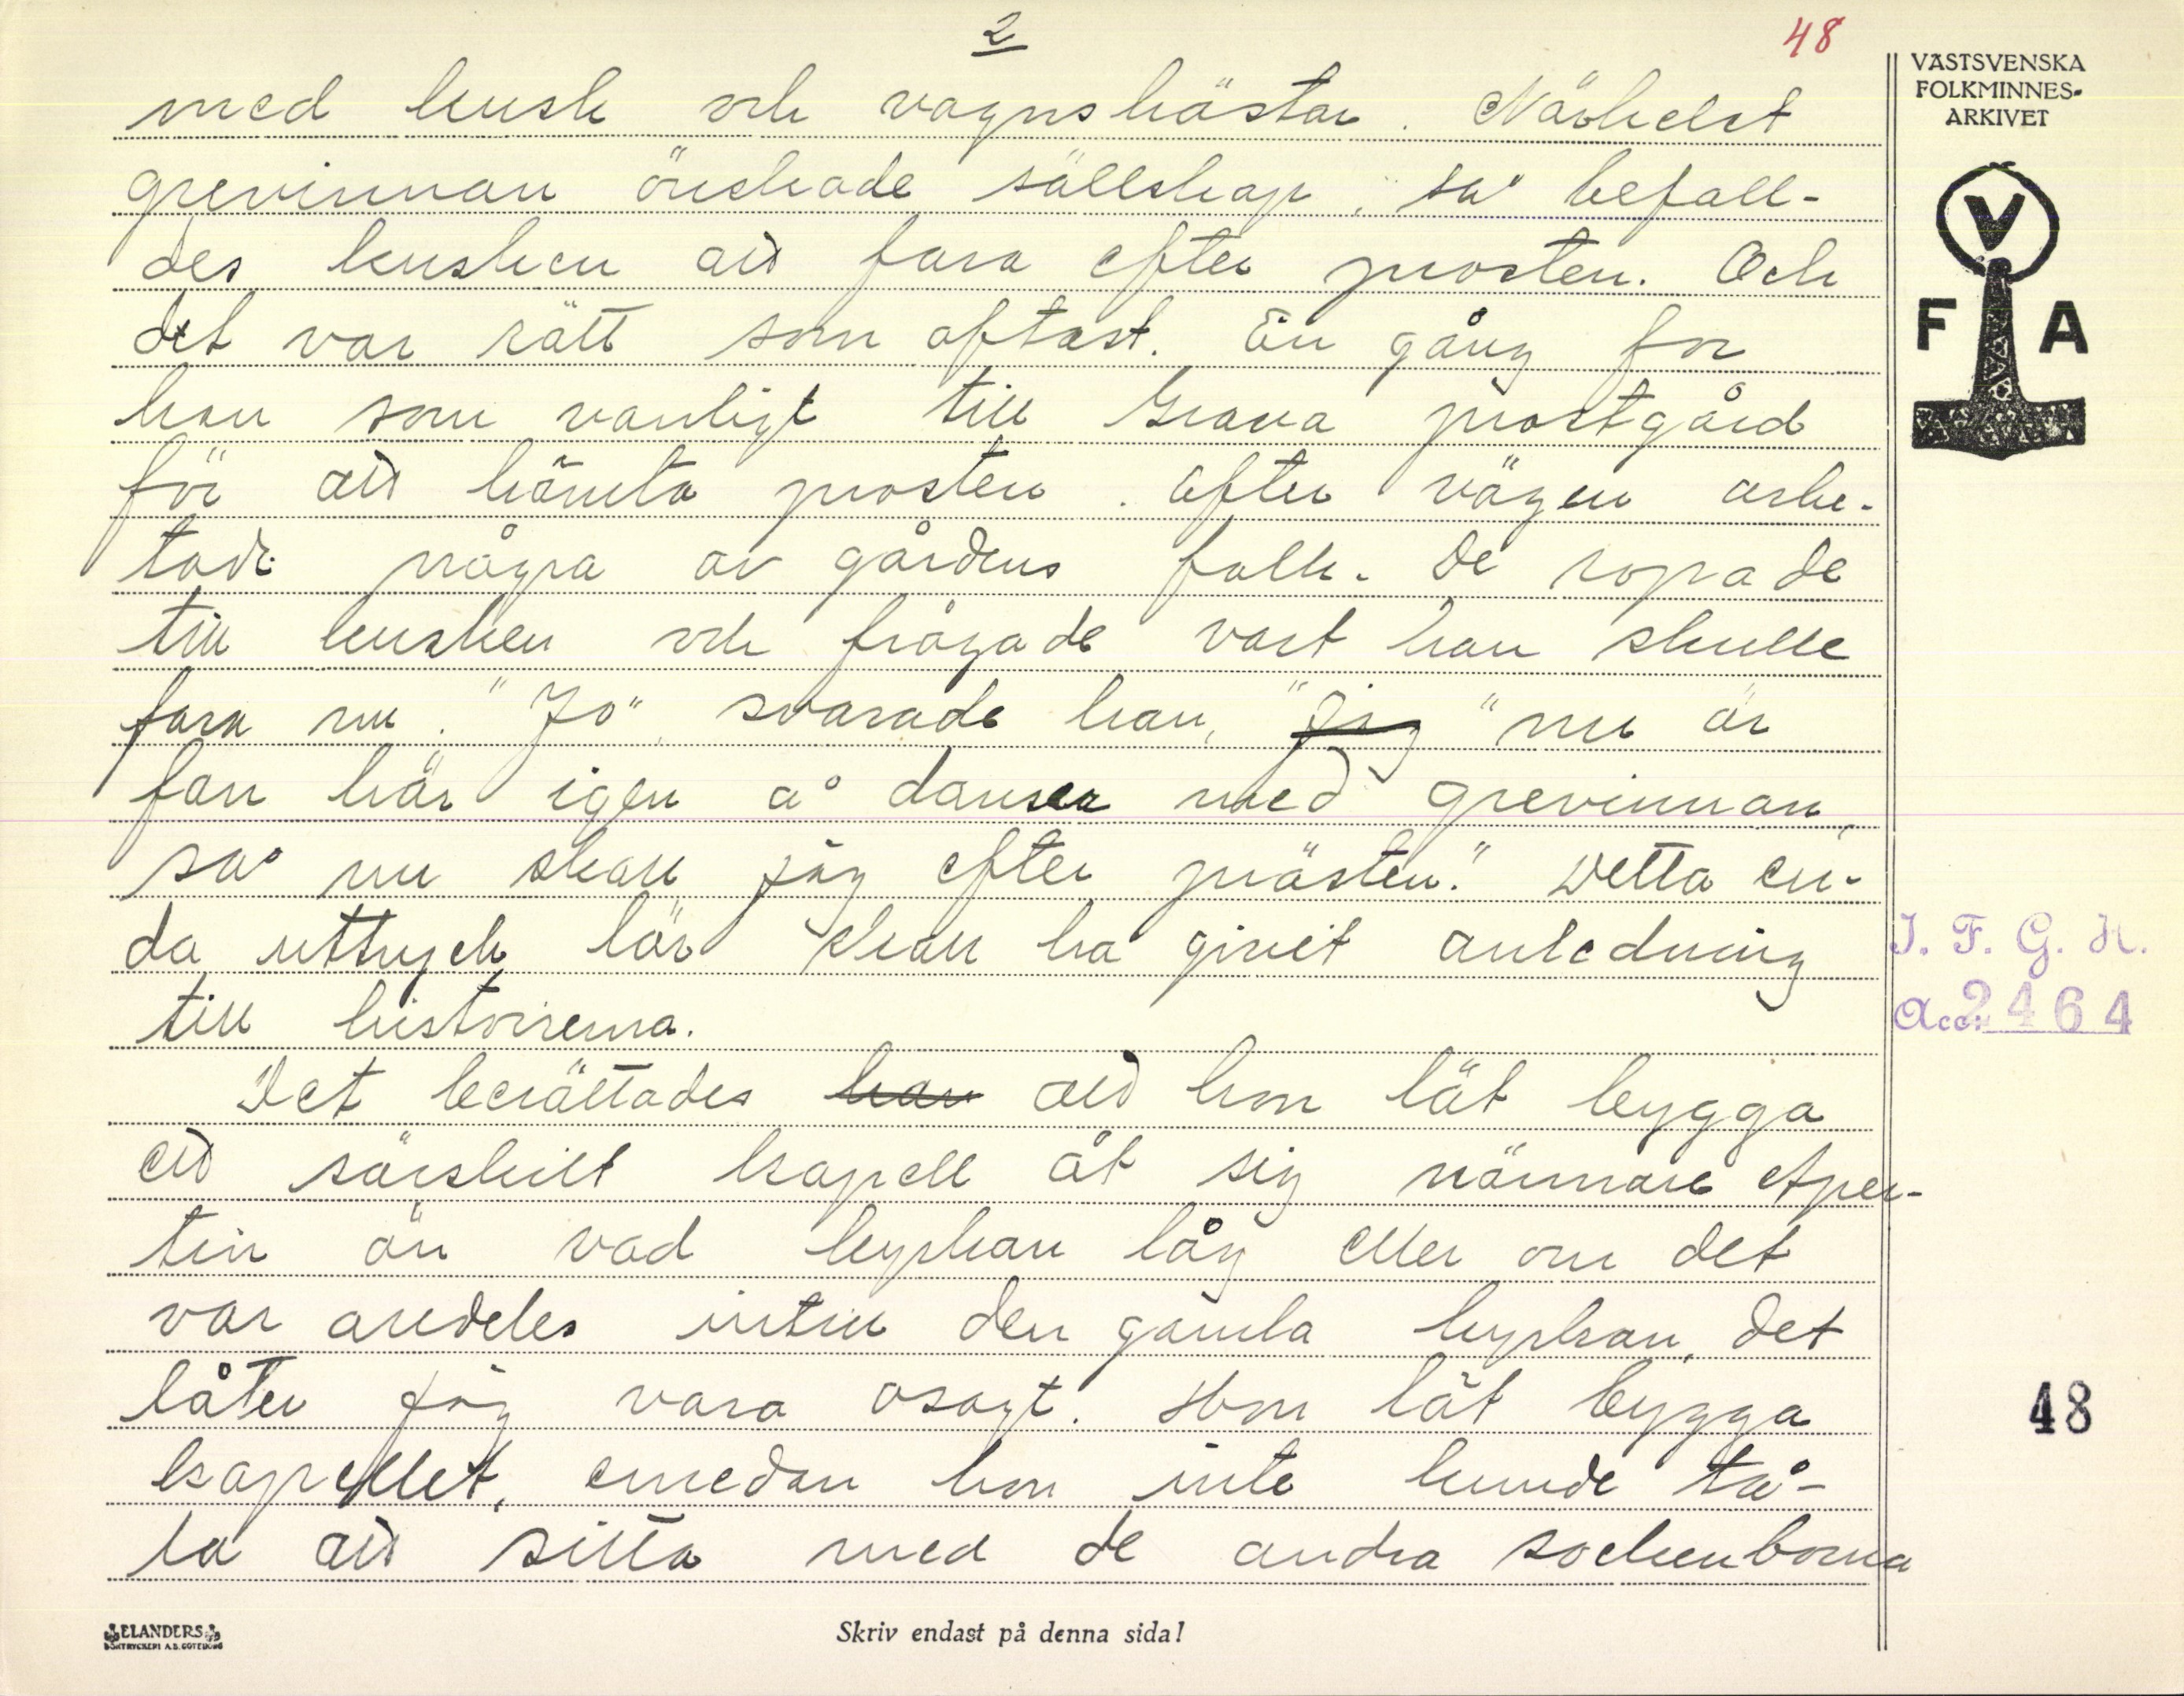 2
48
med kusk och vagnshästar. Närhelst
grevinnan önskade sällskap, så befall-
des kusken att fara efter prosten. Och
det var rätt som oftast. En gång for
han som vanligt till Grava prostgård
för att hämta prosten. Efter vägen arbe-
tade några av gårdens folk. De ropade
till kusken och frågade vart han skulle
fara nu. "Jo", svarade han, "jag "nu är
fan här igen å dansar med grevinnan,
så nu skall jag efter prästen." Detta en-
da uttryck lär skall ha givit anledning
till historierna.
Det berättades han att hon lät bygga
ett särskilt kapell åt sig närmare Aper-
tin än vad kyrkan låg eller om det
var aredeles intill den gamla kyrkan, det
låter jag vara osagt. Hon lät bygga
kapellet, emedan hon inte kunde tå-
la att sitta med de andra sockenborna
VÄSTSVENSKA
FOLKMINNES-
ARKIVET
V
F A
I. F. G. H.
Acc. 2464
48
ELANDERS
BOKTRYCKERI A.B. GÖTEBORG
Skriv endast på denna sida!